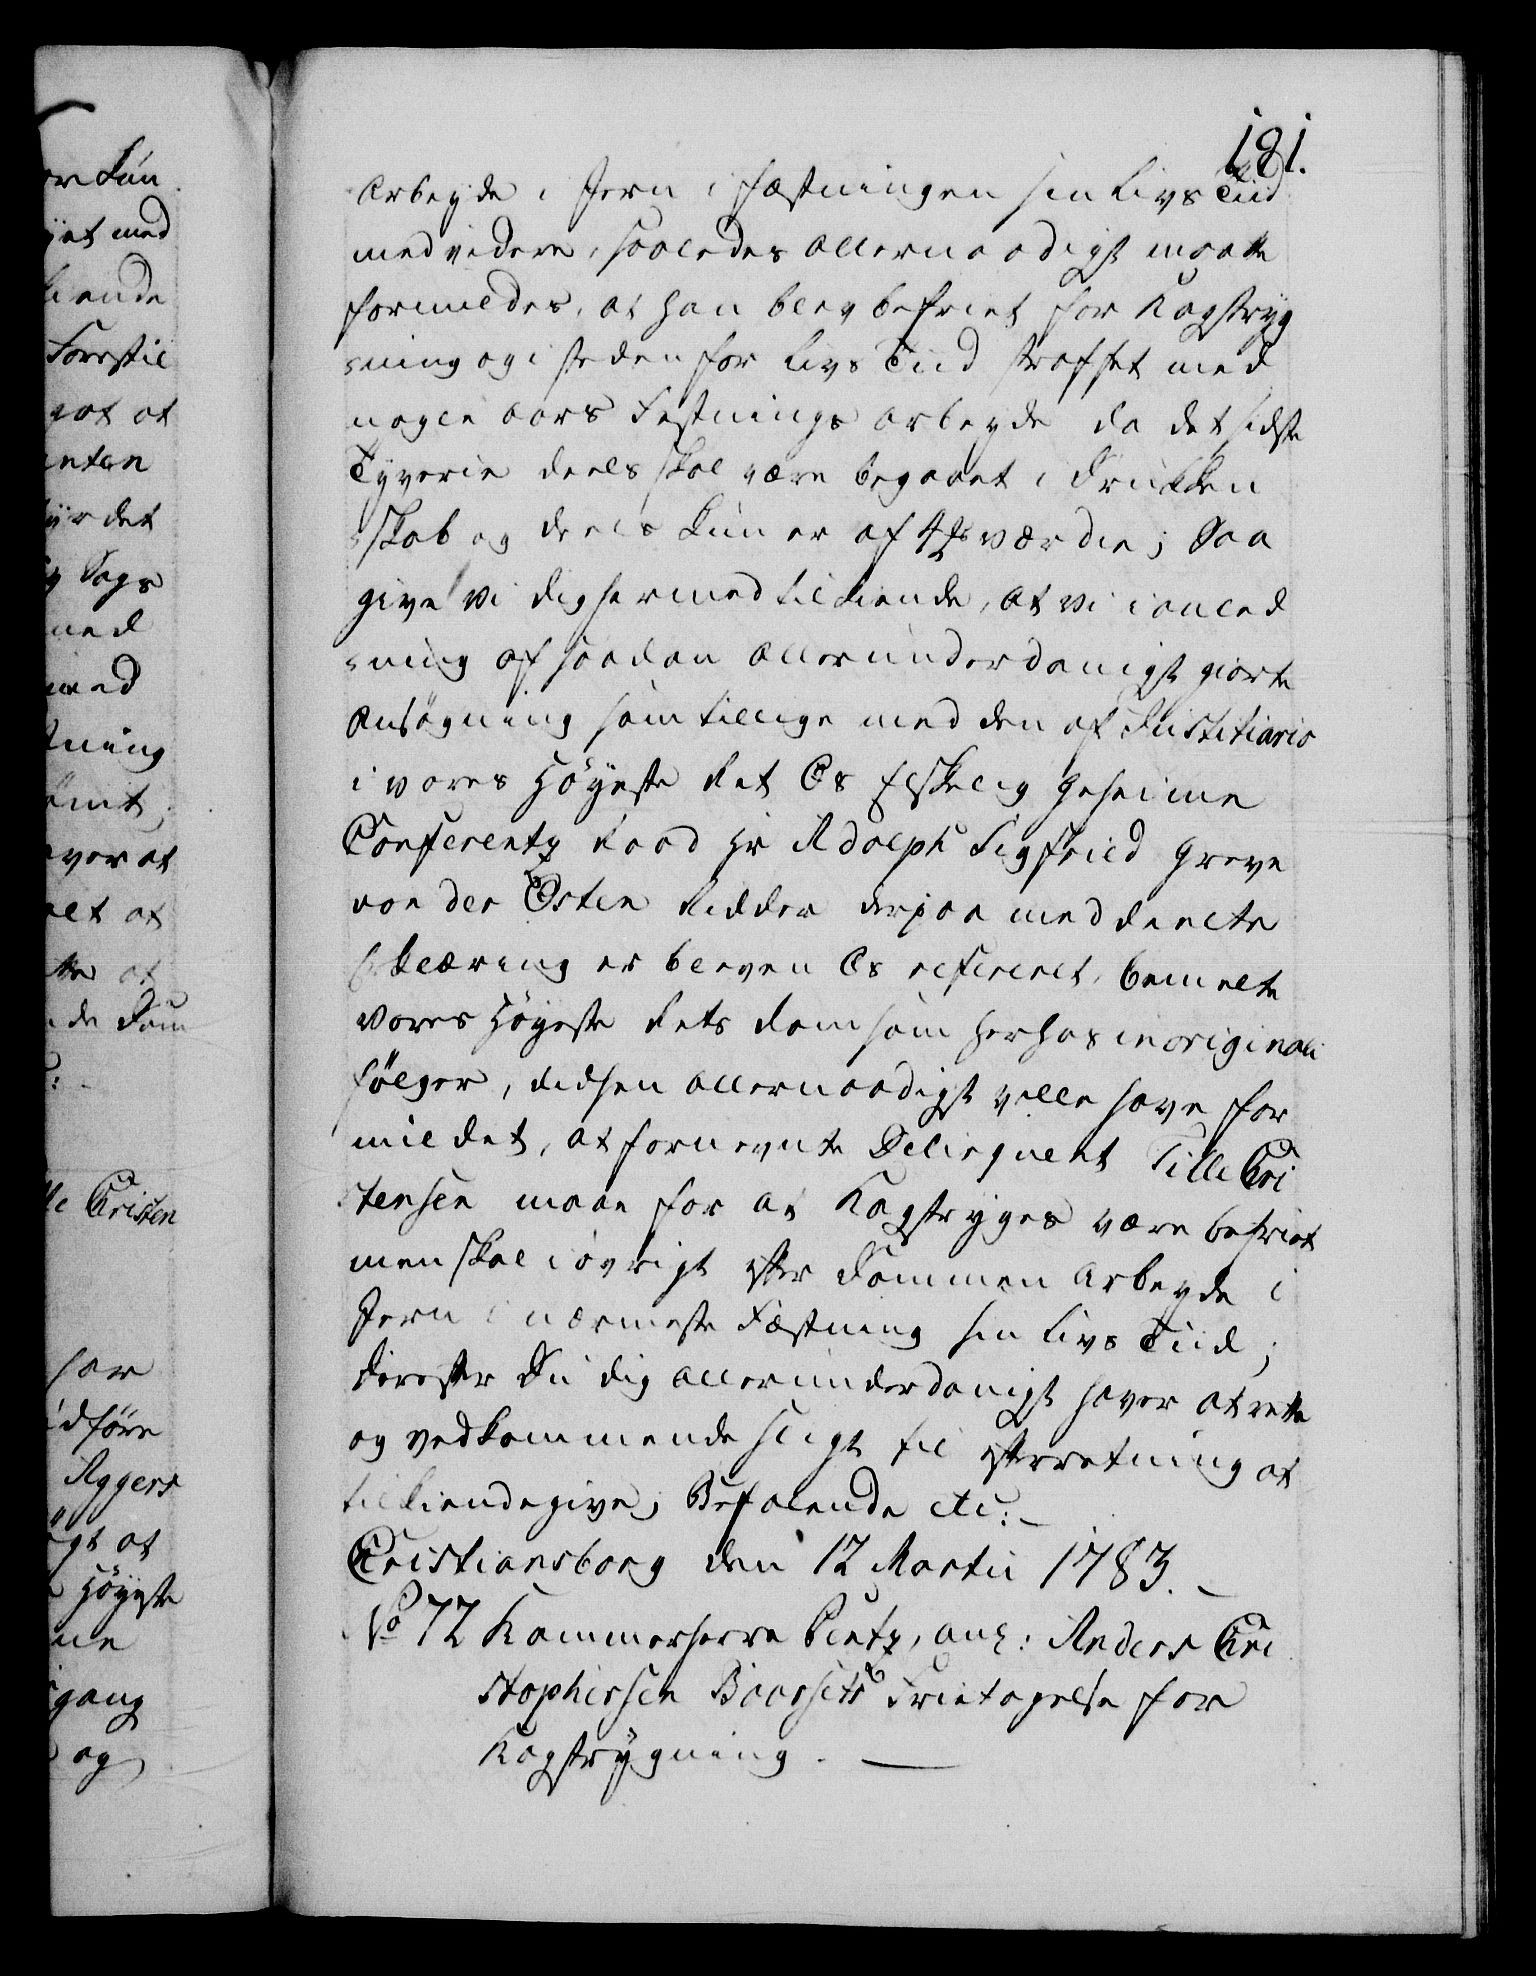 181.
Arbeyde i Jern i Fæstningen sin Livs Tiid
med videre, saaledes allernaadigst maatte
formildes, at han blev befriet for Kagstryg
-ning og i steden for Livs Tiid straffet med
nogle Aars Festnings Arbeyde da det sidste
Tyverie deels skal være begaaet i Drukken
-skab og deels kun er af 4 værdie; Saa
give Vi dig hermed tilkiende, at Vi i anled
-ning af saadan allerunderdanigst giorte
Ansøgning som tillige med den af Justitiario
i vores Høyeste Ret Os Elskelig Geheime
Conferentz Raad Hr Adolph Sigfried Greve
von der Osten Ridder derpaa meddeelte
Erklæring er bleven Os refereret, bemelte
Vores Høyeste Rets Dom som herhos in originali
følger, didhen allernaadigst ville have for
mildet, at fornevnte Delinqvent Tille Cri
stensen maae for at Kagstryges være befriet
men skal i øvrigt efter Dommen Arbeyde i
Jern i nærmeste Fæstning sin Livs Tiid;
Derefter Du dig allerunderdanigst haver at rette
og vedkommende sligt til efterretning at
tilkiendegive; Befalende etc:
Cristiansborg den 12 Martii 1783.
No 72 Kammerherre Pentz, ang: Anders Cri
stophersen Baarsets Frietagelse for
Kagstrygning.
or kun
yet med
kiende
Forestil
at
det
Sags
med
med
ning
ømt,
over at
at
at
de Dom
lle Cristen
har
idføre
Aggers
at
Høyeste
gang
og